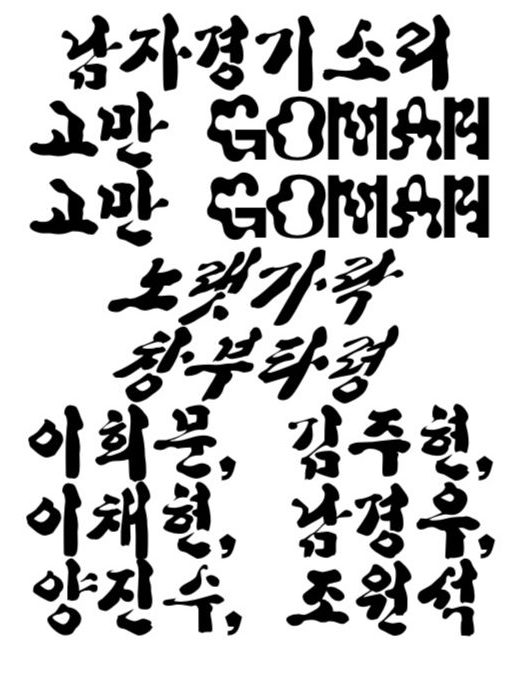 남자경기소리
고만 GOMAN
고만 GOMAN
노랫가락
창부타령
이희문, 김주현,
이채현, 남경우,
양진수, 조원석